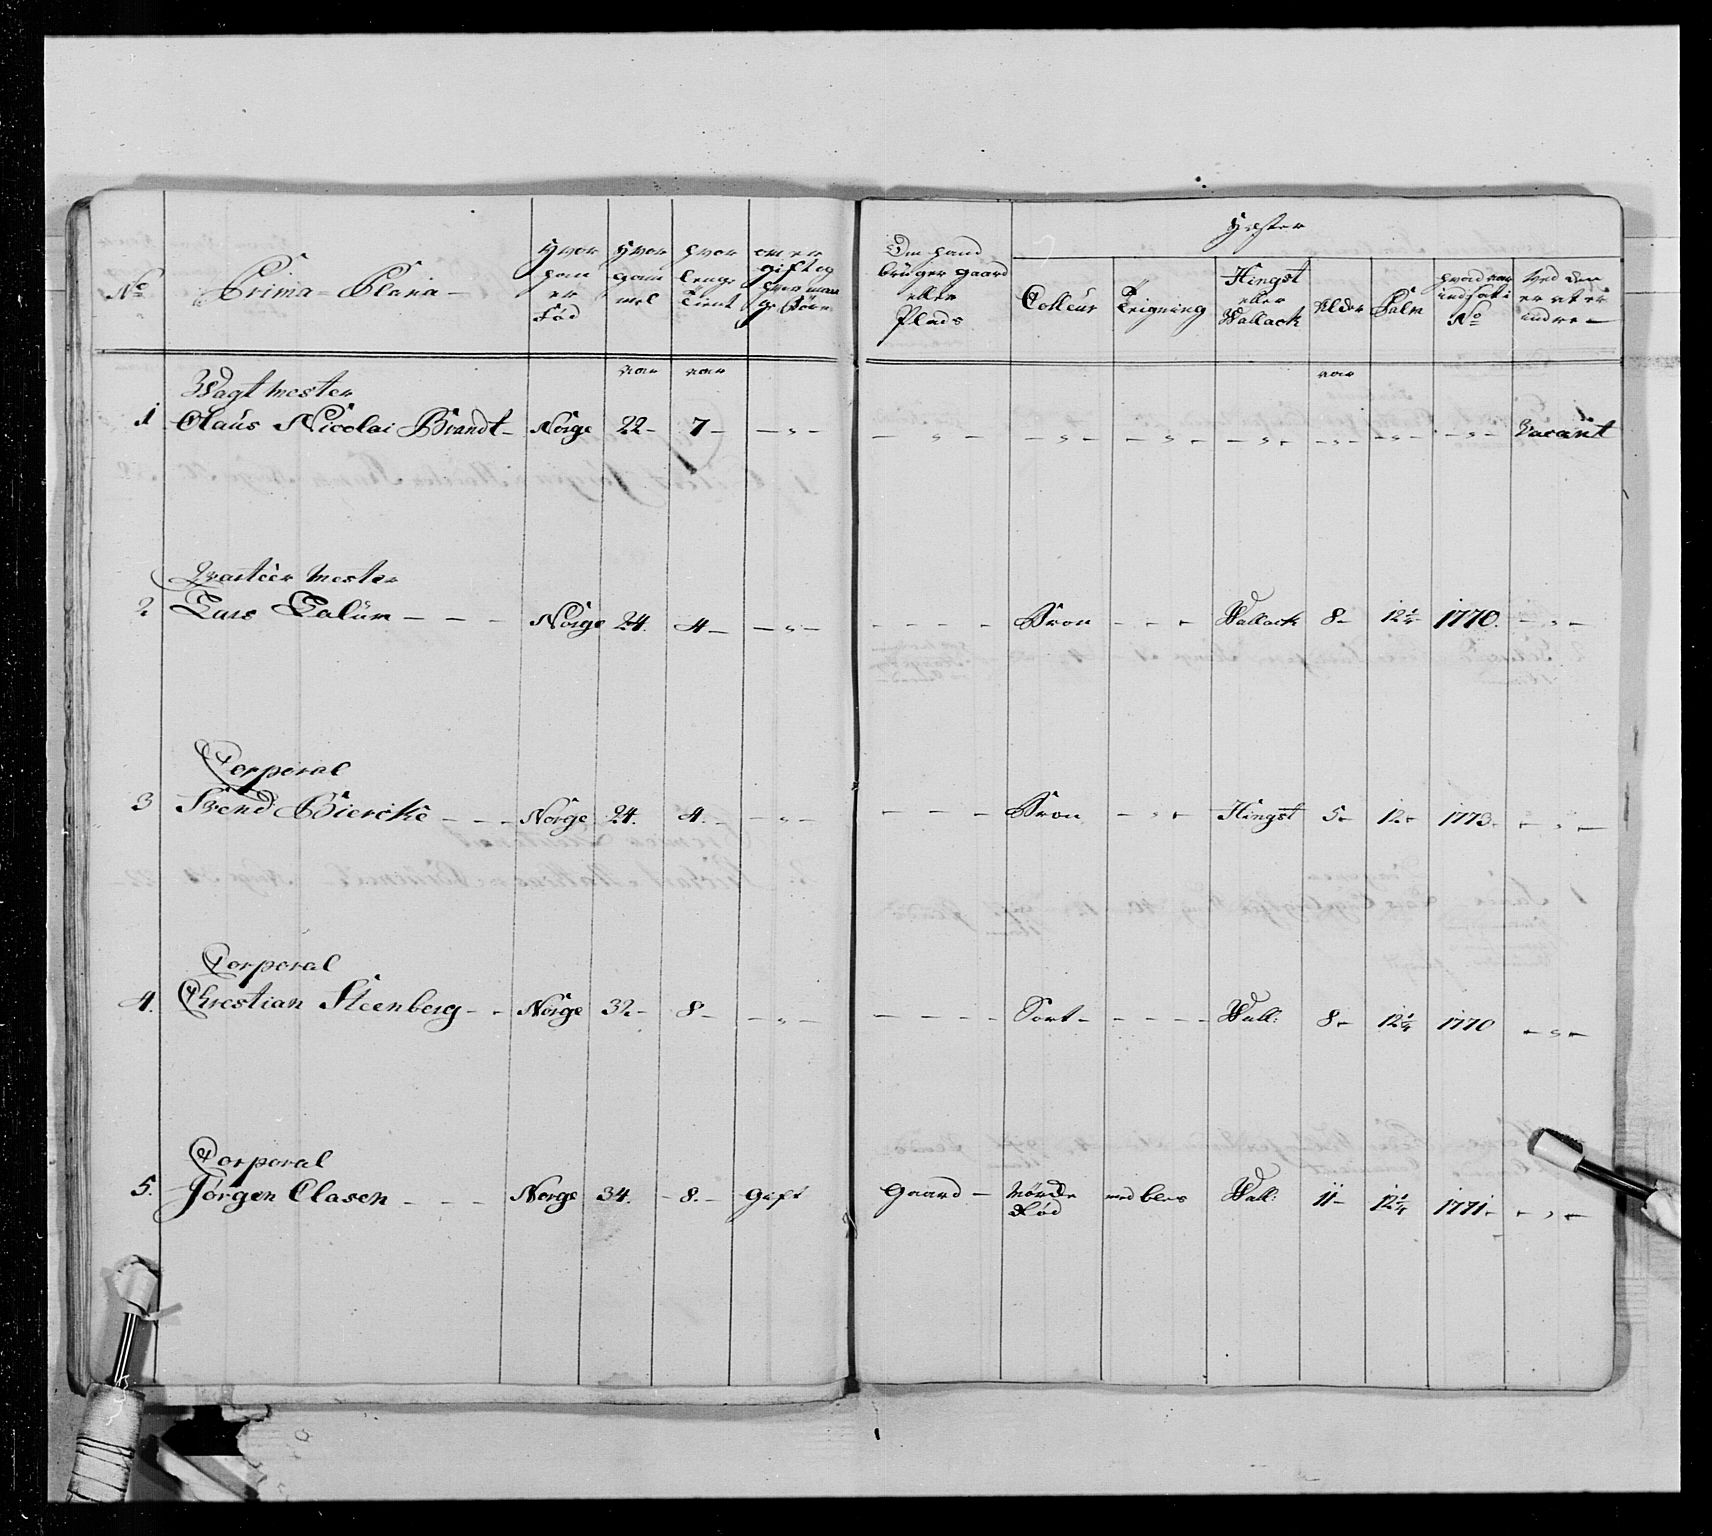 No
Prima Plana
Hvor han er Föd
Hvor gam mel
Hvor lenge tient
om er gift og hvor mange Börn
Om hand brüger gaard eller Plads
Hæster
Colleur
Teigning
Hingst eller Wallack
Alder
Palm
hvad aar indsat
No
Ved den er at er indre
aar aar aar
Wagtmester
1 Claüs Nicolai Brandt - Norge 22 - 7 - - „ - - „ - - „ - - „ - - „ - - „ - - „ - - „ - 1 Vacant
Qvarteermester
2 Lars Dalüm - - - Norge 24. 4 - - „ - - - - - Bron - - - Wallack 8 - 12 1/4 1770. - „ -
Corporal
3 Svend Biercke - - - Norge 24. 4. - - „ - - - - Bron - „ - Hingst 5 - 12 - 1773. - „ -
Corporal
4. Christian Steenberg - - Norge 32 - 8 - - „ - - - - - Sort - - - - - Wall: 8 - 12 1/4 1770 - „ -
Corporal
5. Jörgen Clasen - - - Norge 34. - 8. - Gift Gaard - Mörcke Röd med bles Wall: 11 - 12 1/4 1771 - - „ -